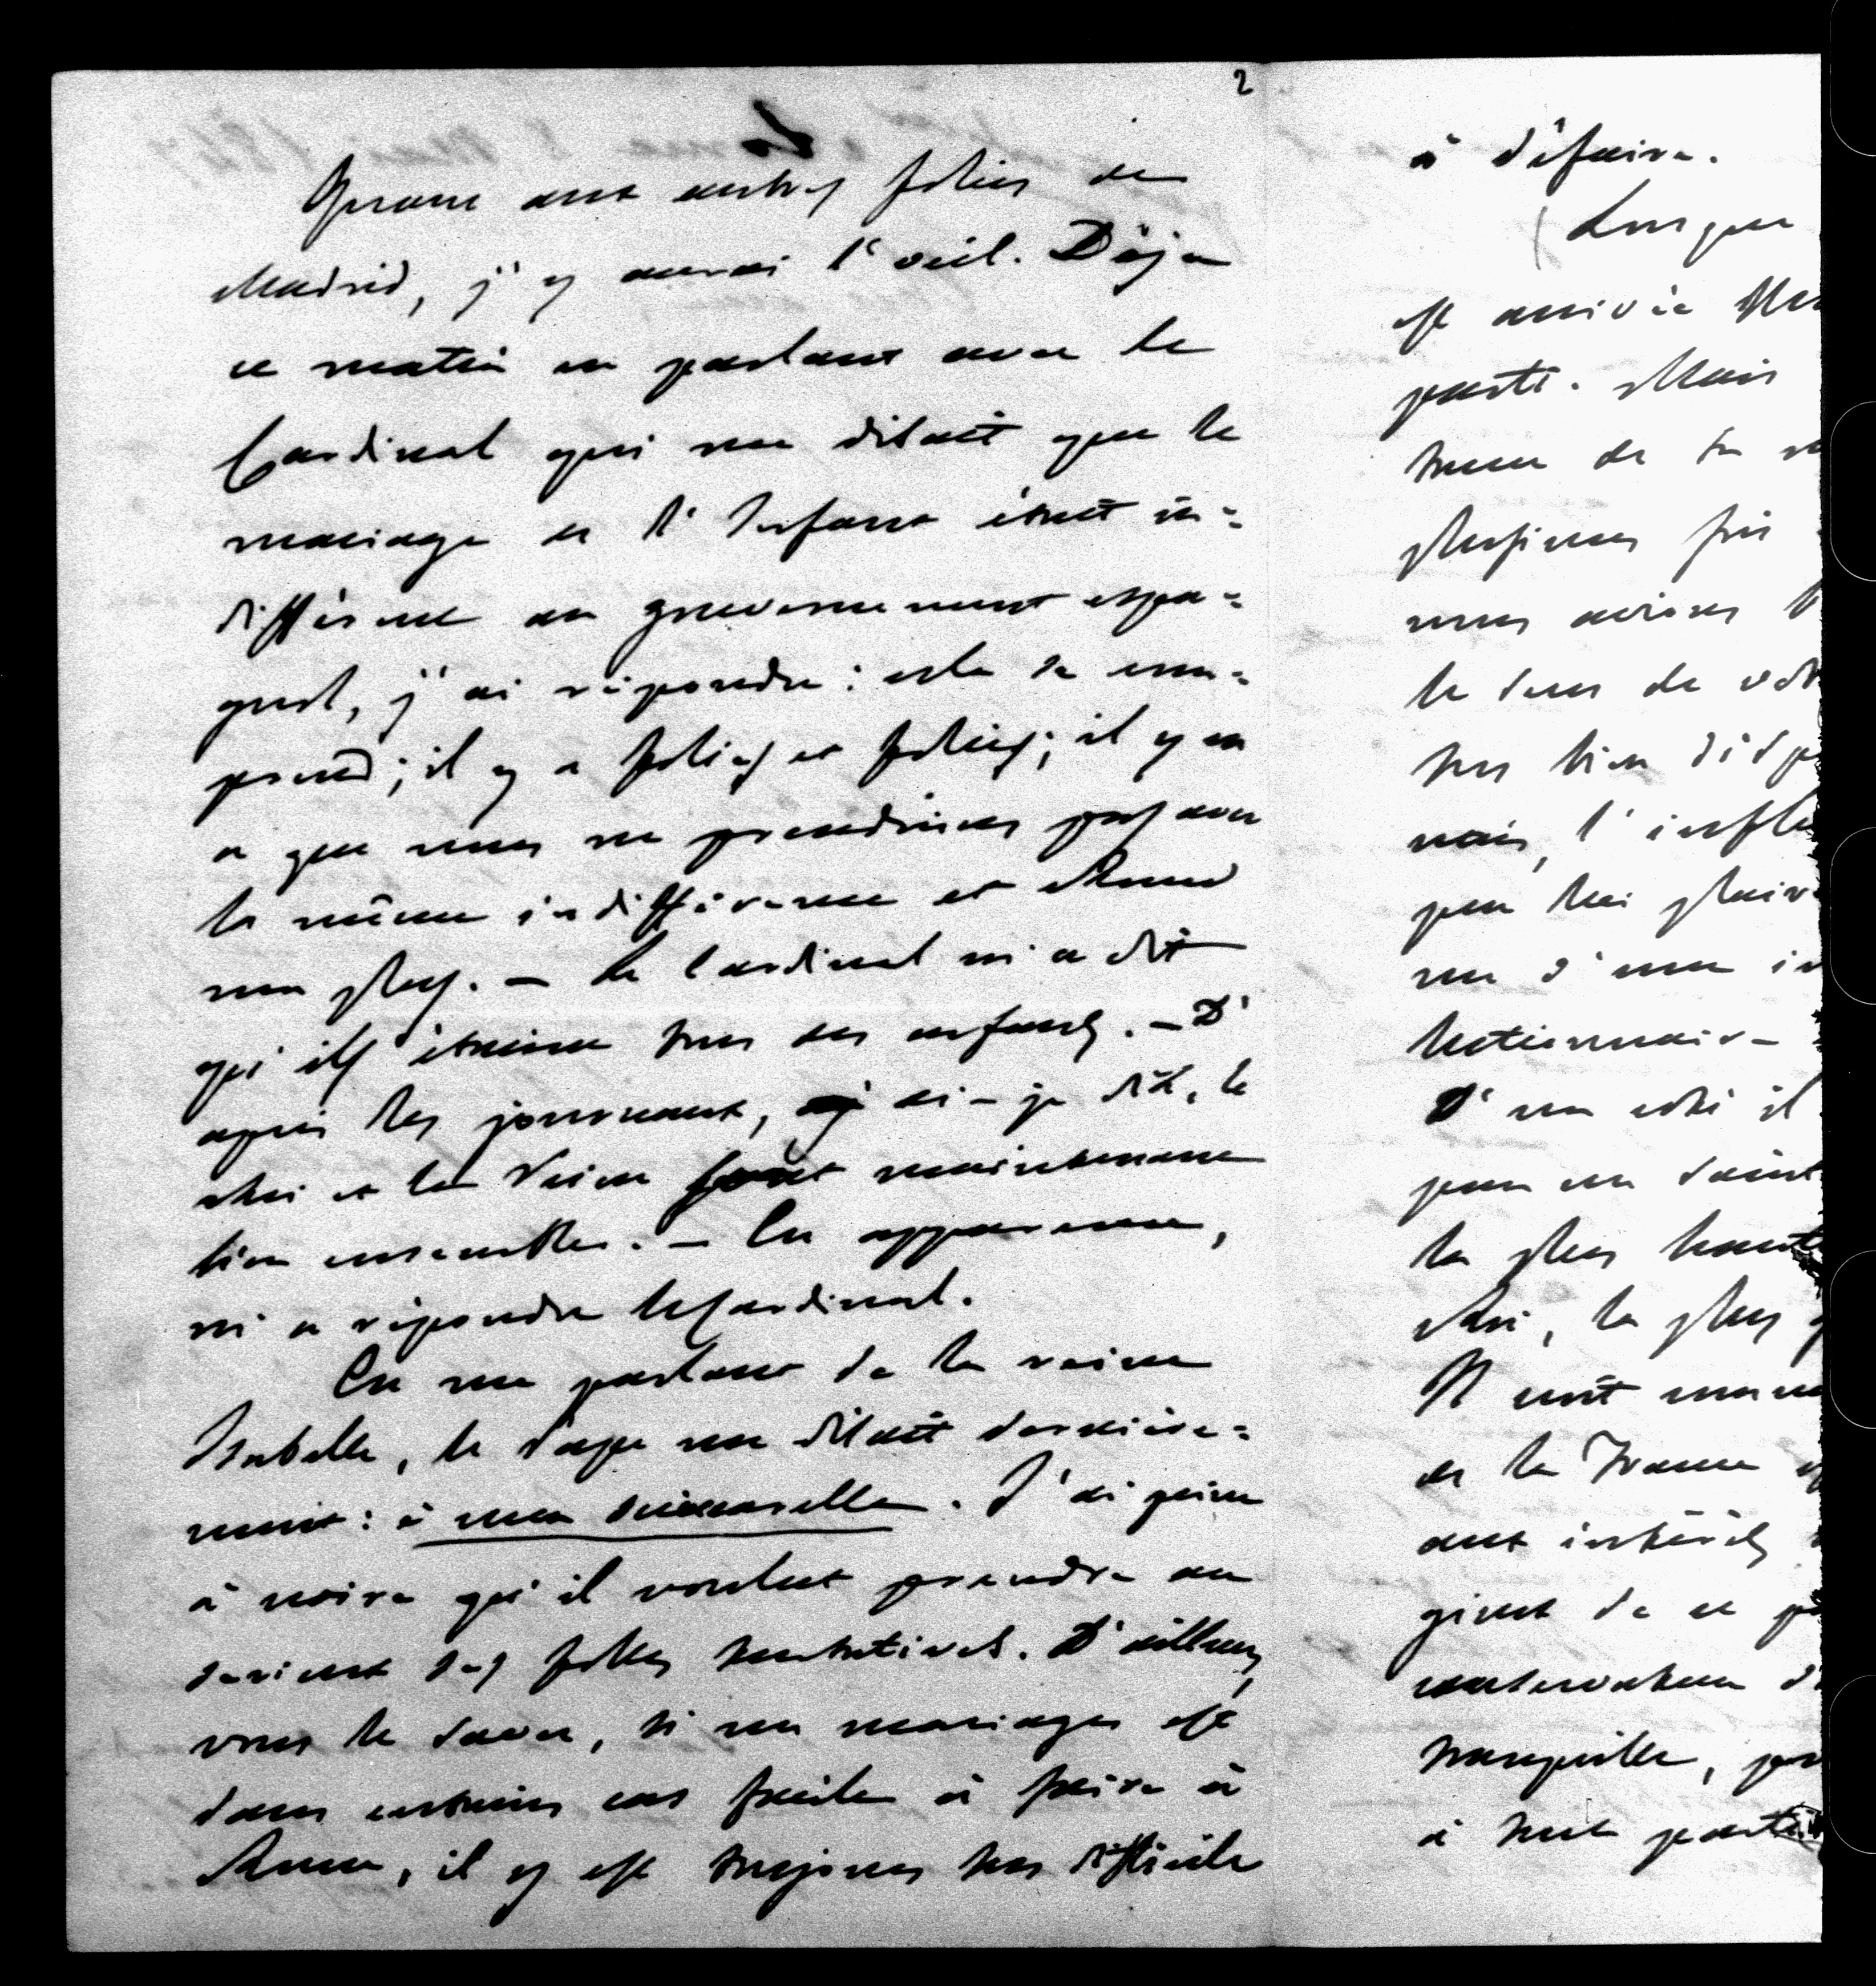 2
Quant aux autres folies de
Madrid, j'y aurai l'œil. Déjà
ce matin en parlant avec le
Cardinal qui me disait que le
mariage de l'Infant était in=
différent au gouvernement espa=
gnol, j'ai répondu : cela se com=
prend ; il y a folies et folies ; il y en
a que nous ne prendrions pas avec
la même indifférence et Rome
non plus. — Le Cardinal m'a dit
qu'ils étaient tous des enfants. — D'
après les journaux, ai-je dit, le
Roi et la Reine sont maintenant
bien ensemble. — En apparence,
m'a répondu le Cardinal.
En me parlant de la reine
Isabelle, le Pape me disait dernière=
ment : è una
J'ai peine
à croire qu'il voulut prendre au
sérieux des folles tentatives. D'ailleurs,
vous le savez, si un mariage est
dans certains cas facile à faire à
Rome, il y est toujours très difficile
à défaire.
(Lorsque
est arrivée
parti. Mais
teneur de
plusieurs fois
nous avions
le sens de
très bien
mais, l'
peu lui
me d'une
D'un côté il
pour un Saint
la plus haute
Roi, la plus
Il croit
de la France
aux intérêts
gient de ce
conservateur
tranquille,
à tout